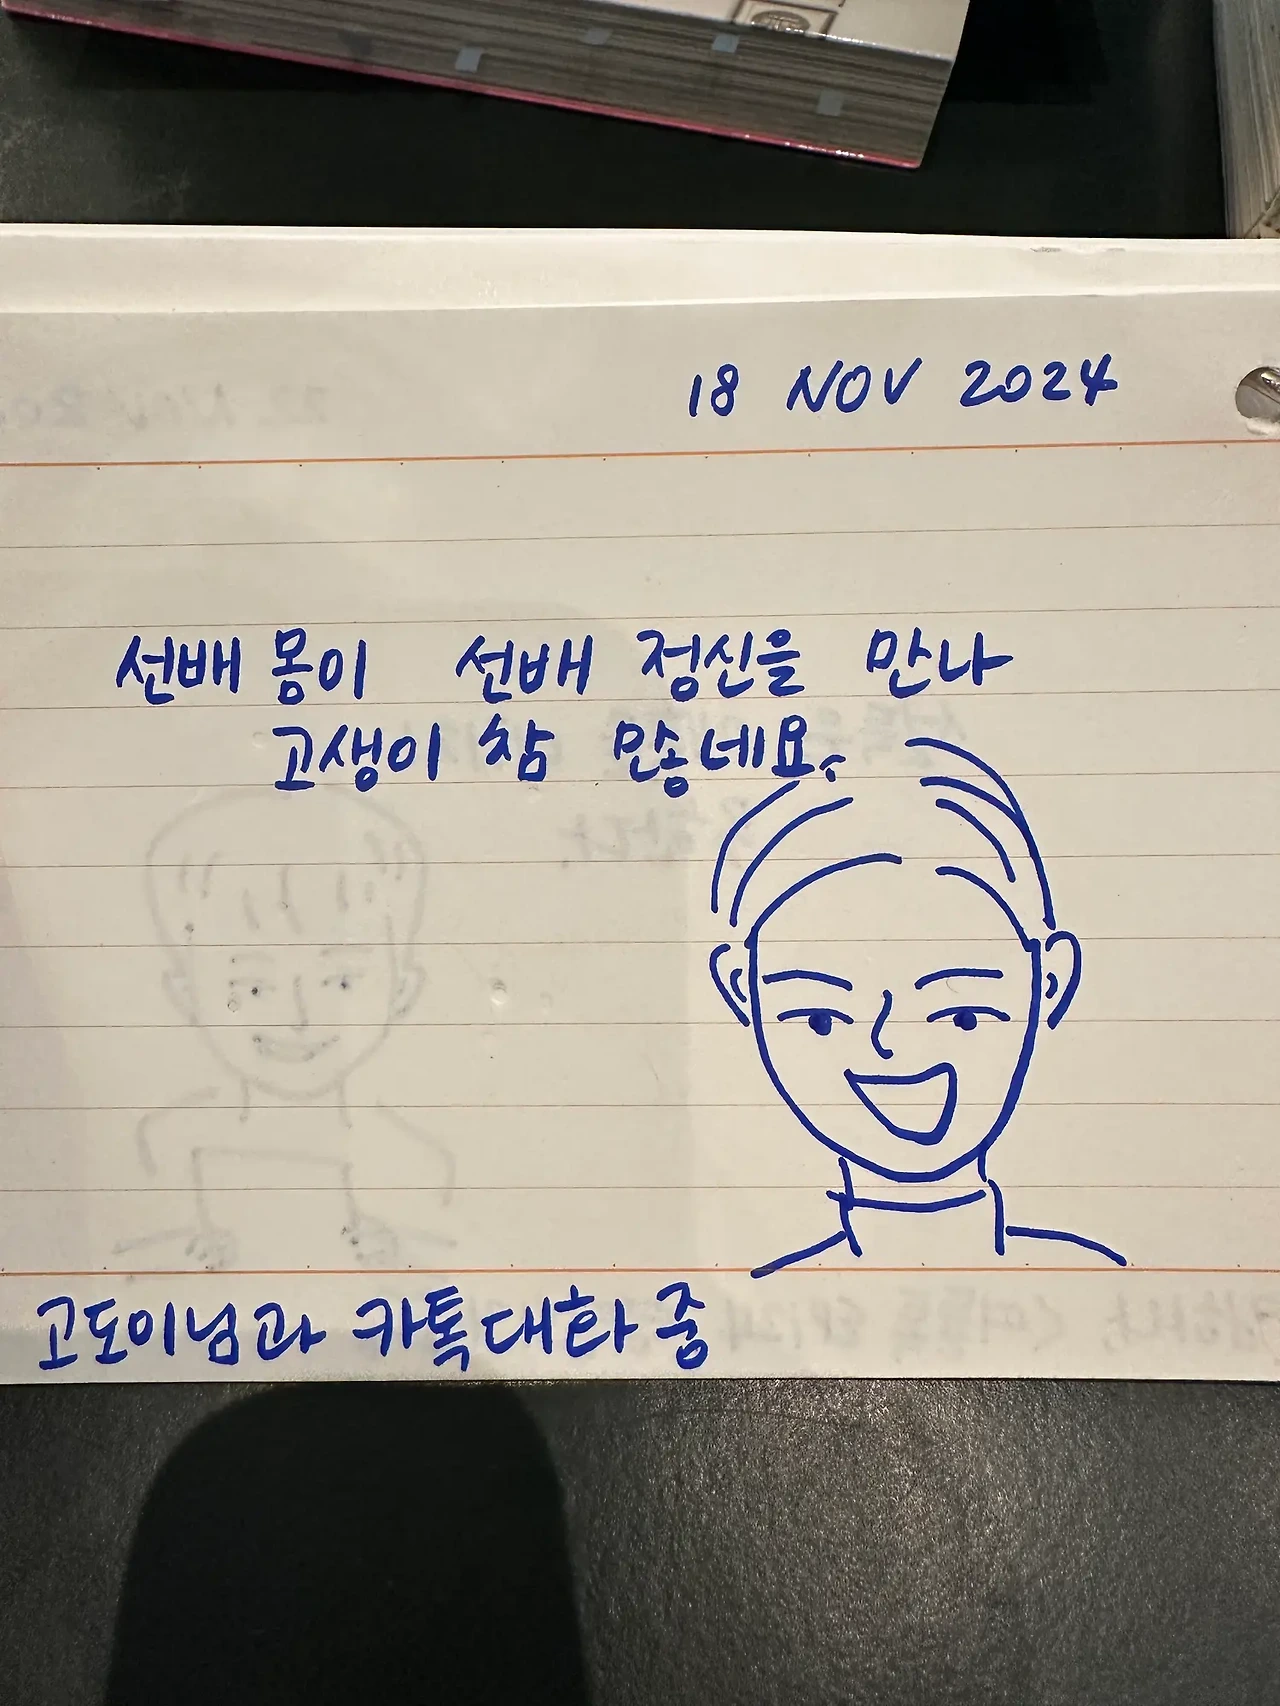 18 NOV 2024
선배 몸이 선배 정신을 만나
고생이 참 많네요.
고도이님과 카톡대화 중